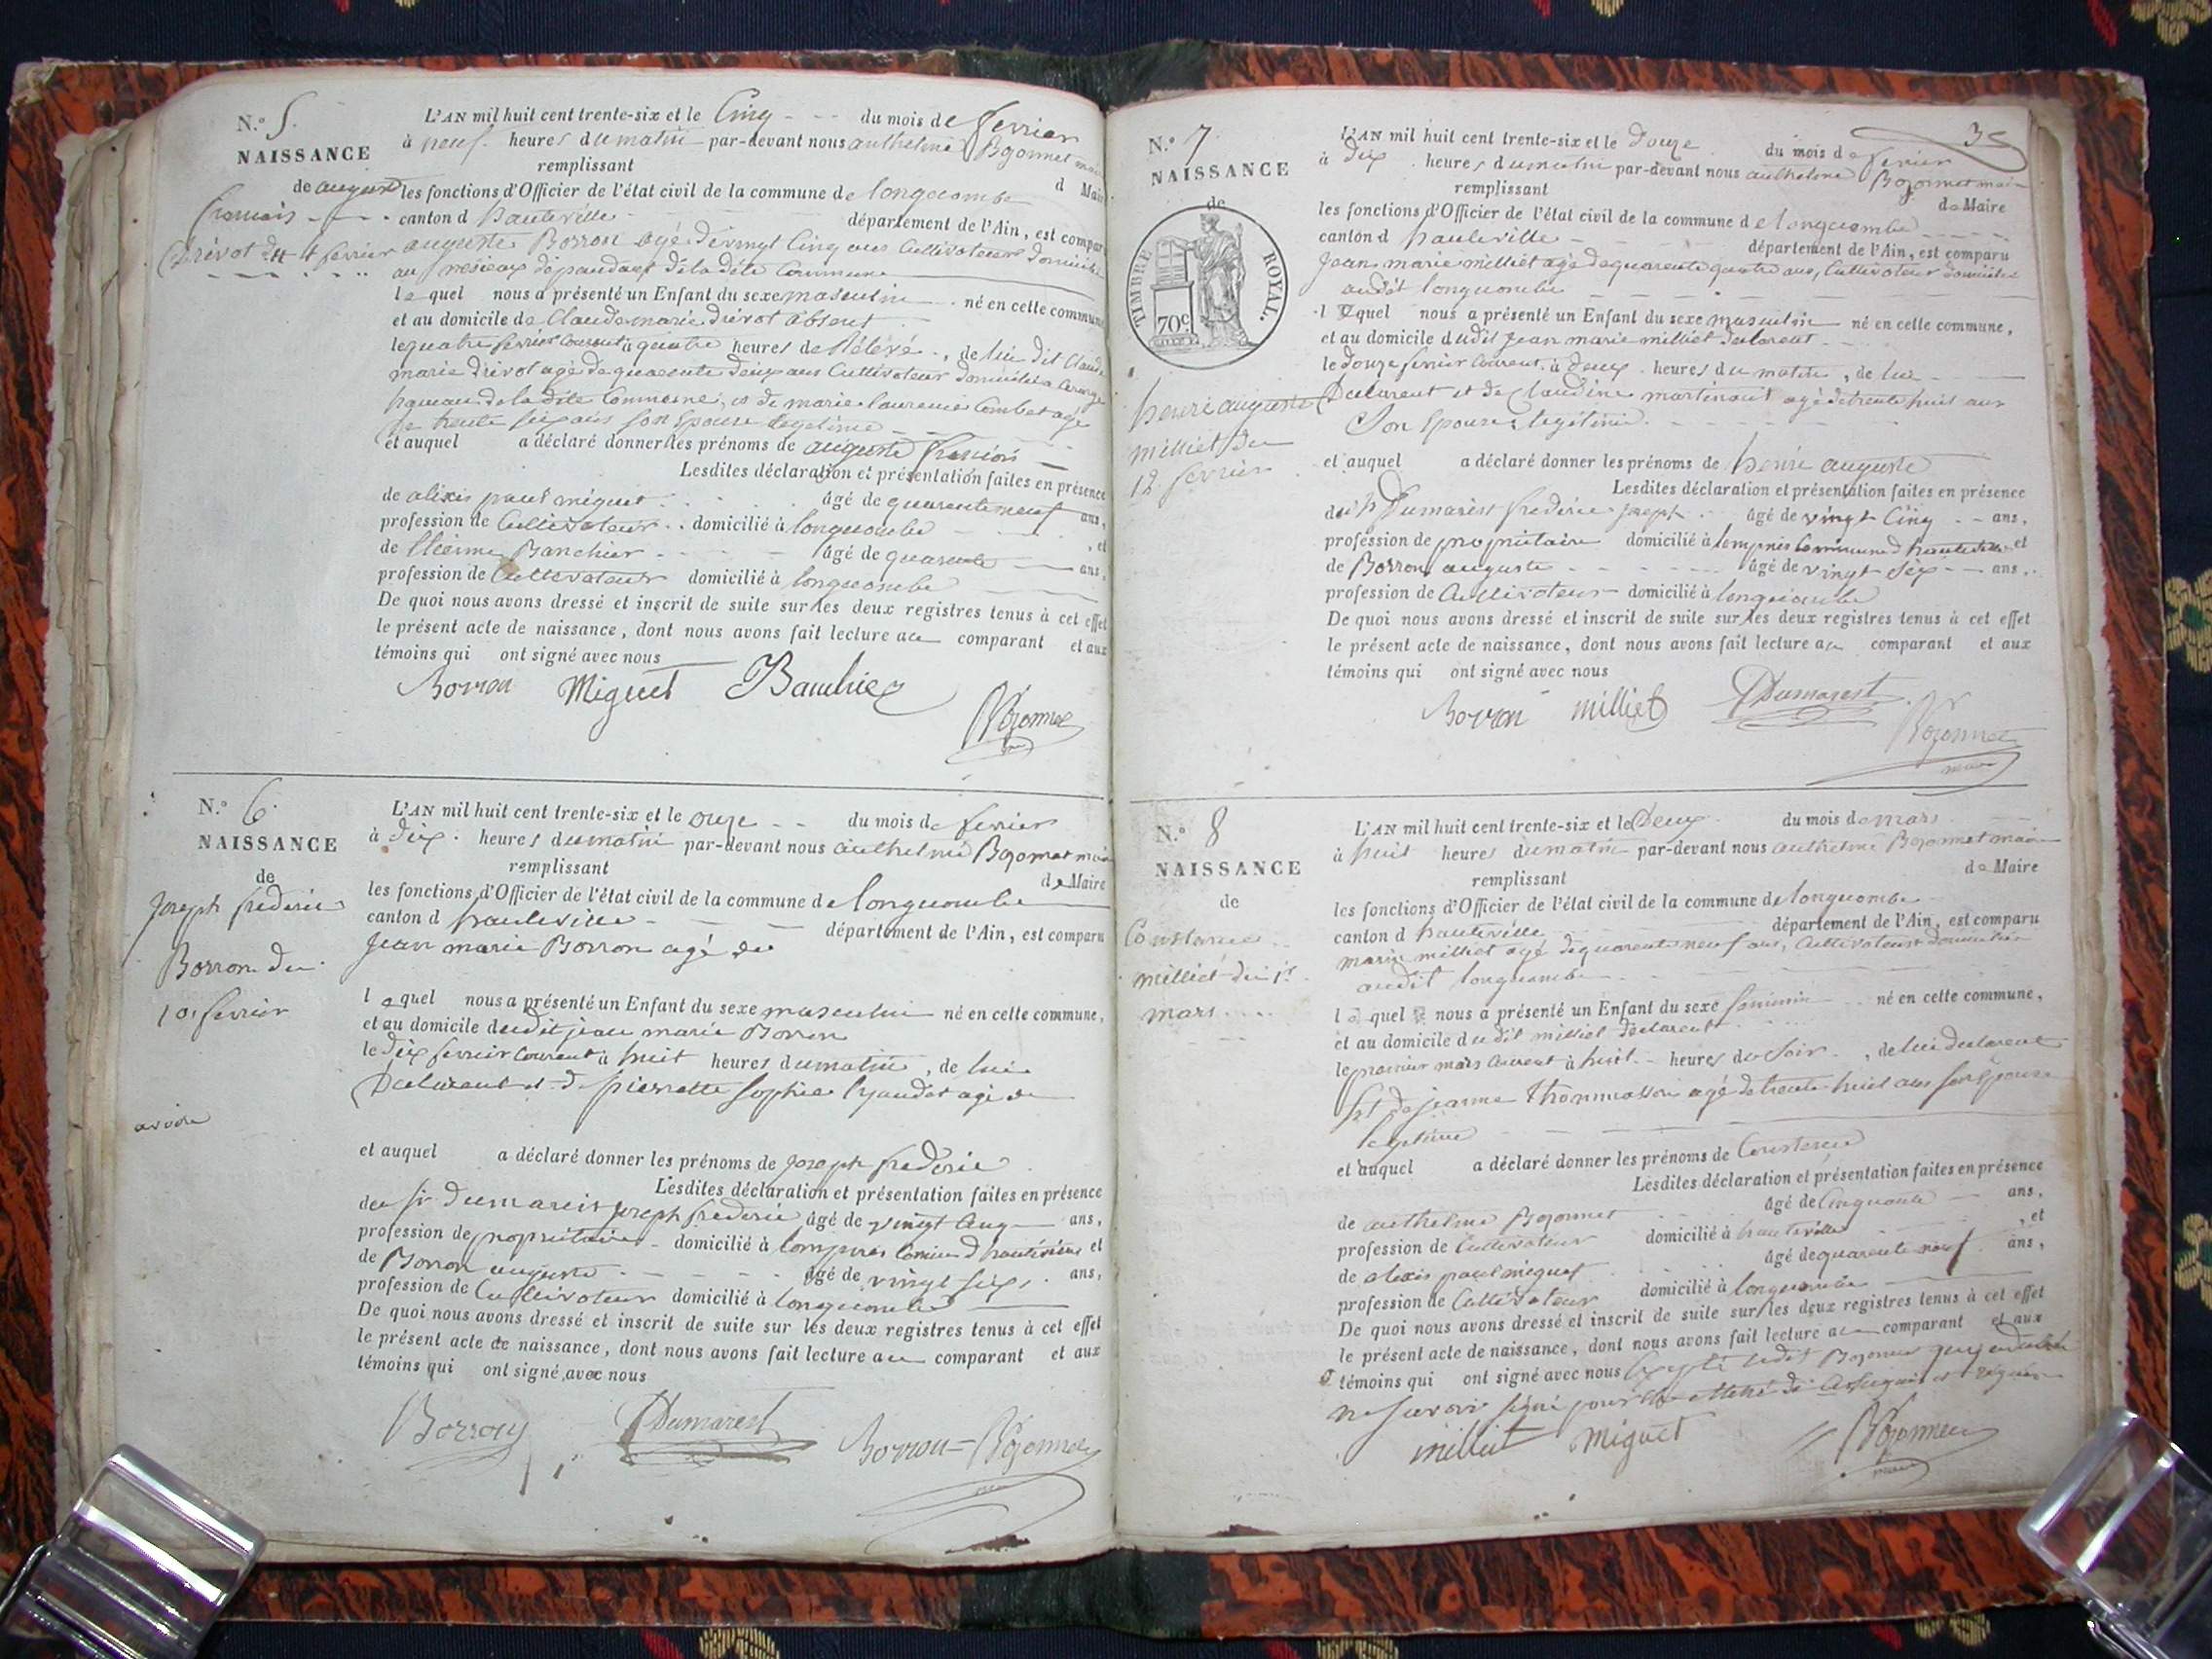 N.° 5.
NAISSANCE
de auguste
francois
Drivot du 4 fevrier
L'AN mil huit cent trente-six et le Cinq du mois de fevrier
à neuf heures du matin par-devant nous anthelme Bozonnet maire
remplissant
d Maire
les fonctions d'Officier de l'état civil de la commune de longecombe
canton d hauteville département de l'Ain, est comparu
auguste Borron agé de vingt Cinq ans Cultivateur domicilié
au dépendant de la dite Commune
le quel nous a présenté un Enfant du sexe masculin né en cette commune
et au domicile de Claude marie Drivot absent
le quatre fevrier courant à quatre heures de , de lui dit Claude
marie Drivot agé de quarente deux ans Cultivateur domicilié a
hameau de la dite Commune, et de marie laurence Combet agé
de trente six ans son Epouse legitime
et auquel a déclaré donner les prénoms de auguste francois
Lesdites déclaration et présentation faites en présence
de alexis paul miguet âgé de quarente neuf ans,
profession de Cultivateur domicilié à longecombe , et
de Etienne Banchier âgé de quarente ans,
profession de Cultivateur domicilié à longecombe
De quoi nous avons dressé et inscrit de suite sur les deux registres tenus à cet effet
le présent acte de naissance, dont nous avons fait lecture au comparant et aux
témoins qui ont signé avec nous
Borron Miguet
Bozonnet
N.° 6.
NAISSANCE
de
Joseph frederic
Borron du
10 fevrier
L'AN mil huit cent trente-six et le onze du mois de fevrier
à dix heures du matin par-devant nous anthelme Bozonnet maire
remplissant
de Maire
les fonctions d'Officier de l'état civil de la commune de longecombe
canton d hauteville département de l'Ain, est comparu
Jean marie Borron agé de
le quel nous a présenté un Enfant du sexe masculin né en cette commune,
et au domicile dudit jean marie Borron
le dix fevrier courant à huit heures du matin, de lui
Declarent et de pierrette sophie agé de
et auquel a déclaré donner les prénoms de Joseph frederic
Lesdites déclaration et présentation faites en présence
du sr Dumarest Joseph frederic âgé de vingt Cinq ans,
profession de propriétaire domicilié à lompnes d hauteville et
de Borron auguste âgé de vingt six ans,
profession de Cultivateur domicilié à longecombe
De quoi nous avons dressé et inscrit de suite sur les deux registres tenus à cet effet
le présent acte de naissance, dont nous avons fait lecture au comparant et aux
témoins qui ont signé avec nous
Borron Dumarest Borron Bozonnet
35
N.° 7
NAISSANCE
de
TIMBRE ROYAL.
70c
henri auguste
milliet du
12 fevrier
L'AN mil huit cent trente-six et le Douze du mois de fevrier
à dix heures du matin par-devant nous anthelme Bozonnet maire
remplissant
de Maire
les fonctions d'Officier de l'état civil de la commune de longecombe
canton d hauteville département de l'Ain, est comparu
Jean marie milliet agé de quarente quatre ans, Cultivateur domicilié
audit longecombe
le quel nous a présenté un Enfant du sexe masculin né en cette commune,
et au domicile dudit Jean marie milliet declarent
le douze fevrier courent à deux heures du matin, de lui
Declarent et de Claudine martinant agé de trente huit ans
Son Epouse legitime
et auquel a déclaré donner les prénoms de henri auguste
Lesdites déclaration et présentation faites en présence
du sr Dumarest frederic Joseph âgé de vingt Cinq ans,
profession de propriétaire domicilié à lompnes Commune d hauteville et
de Borron auguste âgé de vingt six ans,
profession de Cultivateur domicilié à longecombe
De quoi nous avons dressé et inscrit de suite sur les deux registres tenus à cet effet
le présent acte de naissance, dont nous avons fait lecture au comparant et aux
témoins qui ont signé avec nous
Borron milliet Dumarest
Bozonnet
maire
N.° 8
NAISSANCE
de
Constance
milliet du 1er
mars
L'AN mil huit cent trente-six et le Deux du mois de mars
à huit heures du matin par-devant nous anthelme Bozonnet maire
remplissant
de Maire
les fonctions d'Officier de l'état civil de la commune de longecombe
canton d hauteville département de l'Ain, est comparu
marin milliet agé de quarente neuf ans, Cultivateur domicilié
audit longecombe
le quel nous a présenté un Enfant du sexe feminin né en cette commune,
et au domicile dudit milliet declarent
le premier mars courent à huit heures du soir, de lui declarent
et de jeanne Thommasson agé de trente huit ans son Epouse
legitime
et auquel a déclaré donner les prénoms de Constence
Lesdites déclaration et présentation faites en présence
de anthelme Bozonnet âgé de Cinquante ans,
profession de Cultivateur domicilié à hauteville , et
de alexis paul miguet âgé de quarente neuf ans,
profession de Cultivateur domicilié à longecombe
De quoi nous avons dressé et inscrit de suite sur les deux registres tenus à cet effet
le présent acte de naissance, dont nous avons fait lecture au comparant et aux
témoins qui ont signé avec nous Excepté ledit Bozonnet qui a déclaré
ne savoir signé pour de ce enquis et requis
milliet miguet Bozonnet
maire